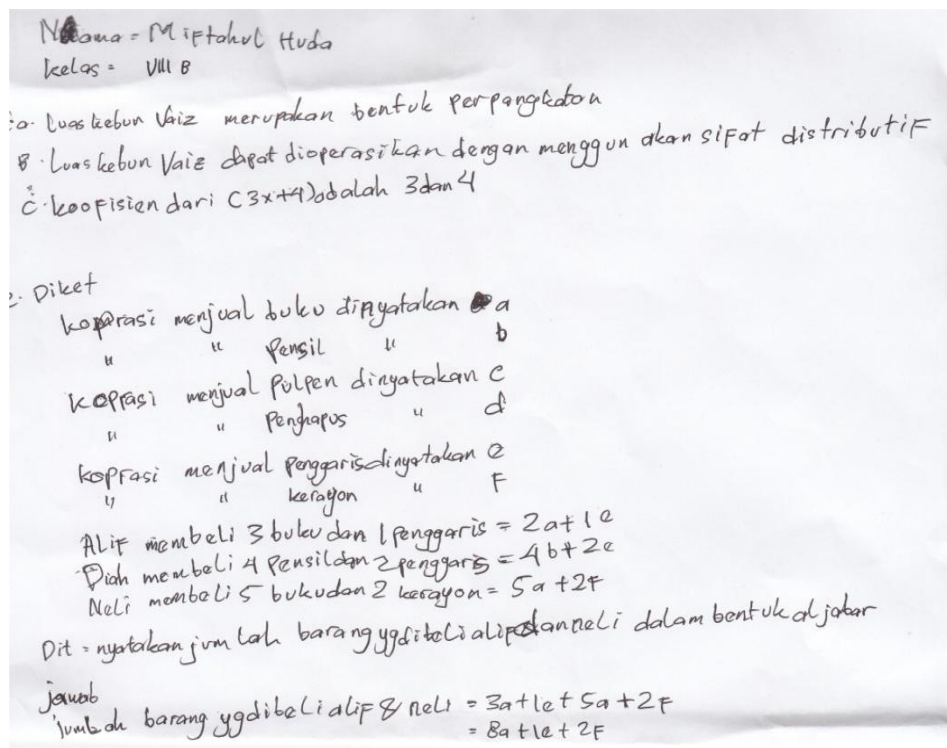 Nama = Miftahul Huda
kelas = VIII B
a. Luas kebun Vaiz merupakan bentuk perpangkatan
B. Luas kebun Vaiz dapat dioperasikan dengan menggunakan sifat distributif
C. koofisien dari (3x+4) adalah 3 dan 4
2. Diket
koprasi menjual buku dinyatakan a
" " Pensil " b
koprasi menjual Pulpen dinyatakan c
" " Penghapus " d
koprasi menjual penggaris dinyatakan e
" " kerayon " F
ALIF membeli 3 buku dan 1 penggaris = 2a+1e
Diah membeli 4 Pensil dan 2 penggaris = 4b+2e
Neli membeli 5 buku dan 2 kerayon = 5a+2F
Dit = nyatakan jumlah barang yg dibeli alif dan neli dalam bentuk aljabar
jawab
jumlah barang yg dibeli alif & neli = 3a+1e+5a+2F
= 8a+1e+2F